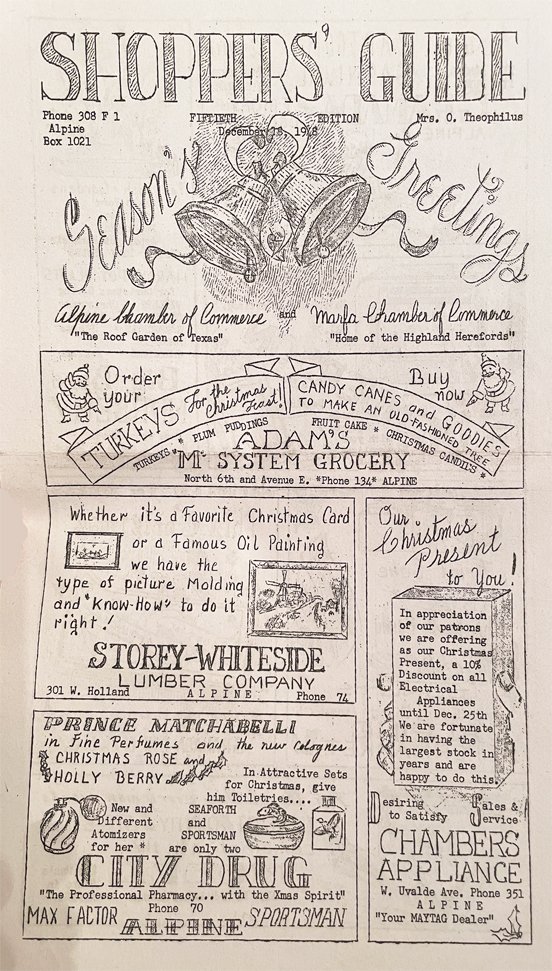 SHOPPERS' GUIDE
Phone 308 F 1 FIFTIETH EDITION Mrs. O. Theophilus
Alpine December 18, 1948
Box 1021
Season's Greetings
Alpine Chamber of Commerce and Marfa Chamber of Commerce
"The Roof Garden of Texas" "Home of the Highland Herefords"
Order your
TURKEYS For the Christmas Feast!
CANDY CANES and GOODIES
TO MAKE AN OLD-FASHIONED TREE
Buy now
TURKEYS * PLUM PUDDINGS * FRUIT CAKE * CHRISTMAS CANDIES *
ADAM'S
"M" SYSTEM GROCERY
North 6th and Avenue E. *Phone 134* ALPINE
Whether it's a Favorite Christmas Card
or a Famous Oil Painting
we have the
type of picture Molding
and "Know-How" to do it
right!
STOREY-WHITESIDE
LUMBER COMPANY
301 W. Holland ALPINE Phone 74
Our
Christmas
Present
to You!
In appreciation
of our patrons
we are offering
as our Christmas
Present, a 10%
Discount on all
Electrical
Appliances
until Dec. 25th
We are fortunate
in having the
largest stock in
years and are
happy to do this.
Desiring Sales &
to Satisfy Service
CHAMBERS
APPLIANCE
W. Uvalde Ave. Phone 351
ALPINE
"Your MAYTAG Dealer"
PRINCE MATCHABELLI
in Fine Perfumes and the new Colognes
CHRISTMAS ROSE and
HOLLY BERRY
In Attractive Sets
for Christmas, give
him Toiletries....
New and
Different
Atomizers
for her *
SEAFORTH
and
SPORTSMAN
are only two
CITY DRUG
"The Professional Pharmacy... with the Xmas Spirit"
Phone 70
MAX FACTOR ALPINE SPORTSMAN